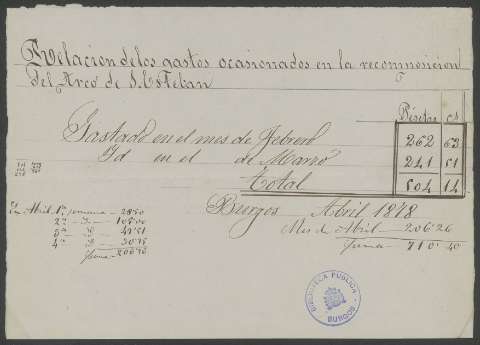 Relacion de los gastos ocasionados en la recomposicion
del Arco de S. Esteban
Pesetas cs
Gastado en el mes de Febrero 262 63
Id en el de Marzo 241 51
Total 504 14
Burgos Abril 1878
Mes de Abril — 206·26
Suma — 710·40
En Abril 1ª semana —
2ª — 
3ª — 
4ª — 
Suma
BIBLIOTECA PUBLICA
BURGOS